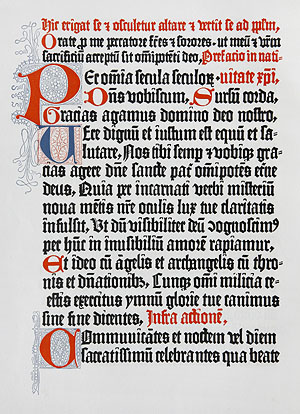 Hic erigat se & osculetur altare & vertit se ad ppłm,
Orate p me peccatore frẽs & sorores. ut meũ & vr̃m
sacrificiũ acceptũ sit omĩpotẽti deo, Prefacio in nati-
Per omĩa secula seculoꝝ. vitate xp̃i,
Dñs vobiscum, Sursũ corda,
Gracias agamus domino deo nostro,
Uere dignũ et iustum est equũ et sa-
lutare, Nos tibi semp & vobiqꝫ gra-
cias agere dñe sancte pat̃ omĩpotẽs et̃ne
deus, Quia per incarnati verbi misteriũ
nova mẽtis nr̃e oculis lux tue claritatis
infulsit, Ut dũ visibiliter deũ cognoscim⁹
per hũc in invisibiliũ amorẽ rapiamur,
Et ideo cũ ãgelis et archangelis cũ thro-
nis et dñationibꝫ, Cumqꝫ omĩ milicia ce-
lestis exercitus ymnũ glorie tue canimus
sine fine dicentes, Infra actionẽ,
Communicãtes et noctem vel diem
sacratissimũ celebrantes qua beate